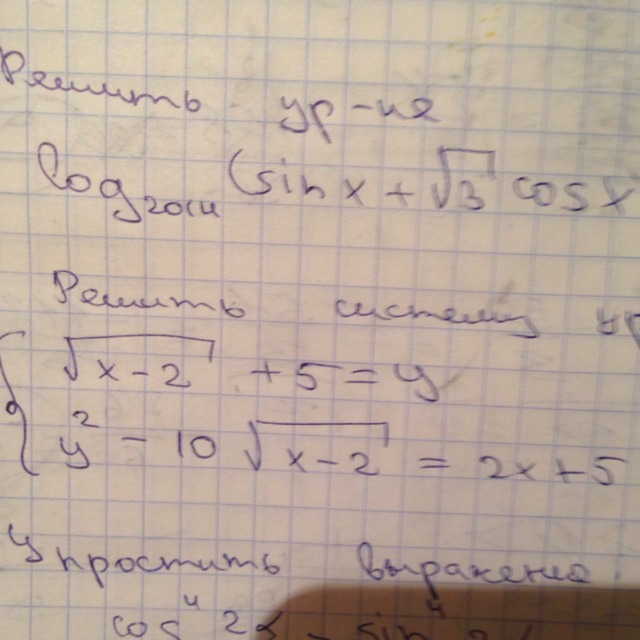 Решить ур-ие
log (sin x + √3 cos x
Решить систему ур
√x-2 + 5 = y
y² - 10 √x-2 = 2x+5
Упростить выражение
cos⁴ 2 - sin⁴